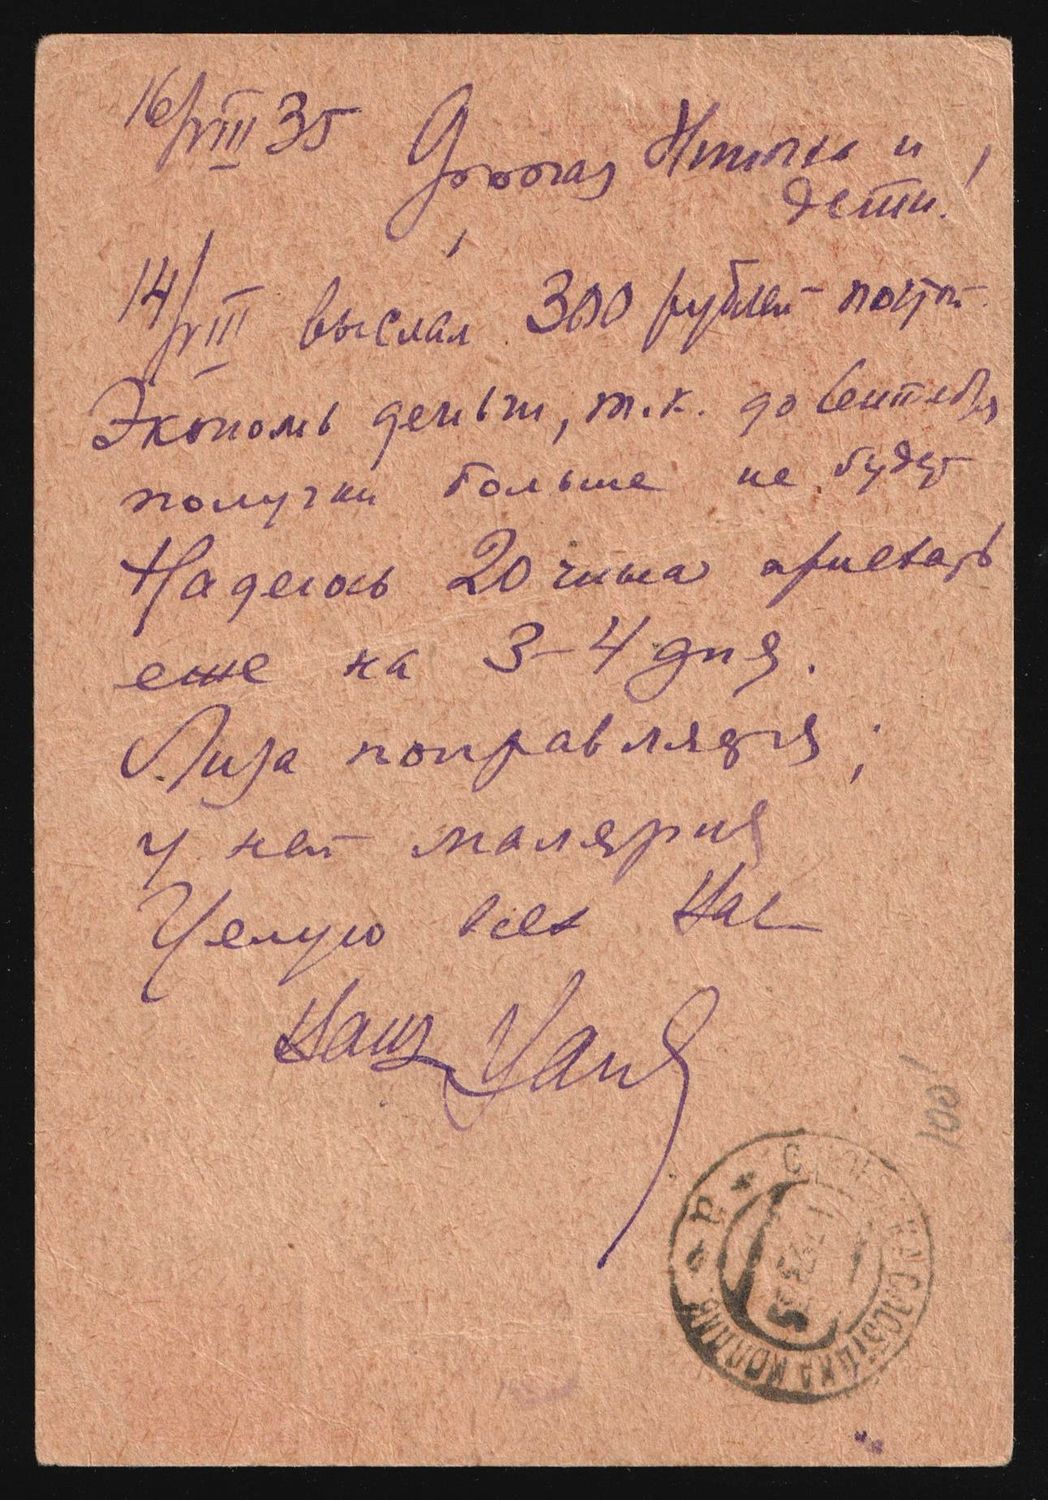 16/VIII 35 Дорогая и
дети!
14/VIII выслал 300 рублей почтой.
Экономь деньги, т.к. до сентября
получки больше не будет
Надеюсь 20 числа приехать
еще на 3-4 дня.
Лиза поправляется;
у ней малярия
Целую всех Вас
Ваш
100